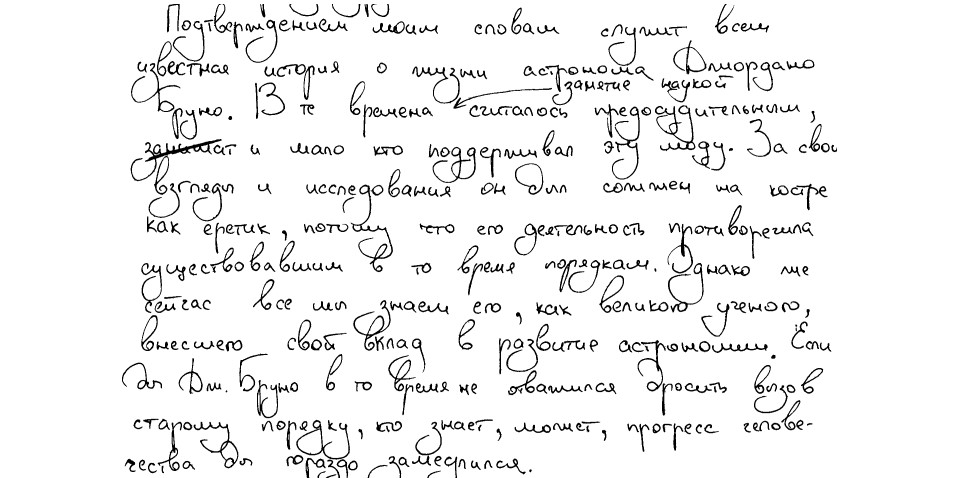 Подтверждением моим словам служит всем
известная история о жизни астронома Джордано
занятие наукой
Бруно. В те времена считалось предосудительным,
и мало кто поддерживал эту моду. За свои
взгляды и исследования он был сожжен на костре
как еретик, потому что его деятельность противоречила
существовавшим в то время порядкам. Однако же
сейчас все мы знаем его, как великого ученого,
внесшего свой вклад в развитие астрономии. Если
бы Дж. Бруно в то время не отважился бросить вызов
старому порядку, кто знает, может, прогресс челове-
чества бы гораздо замедлился.